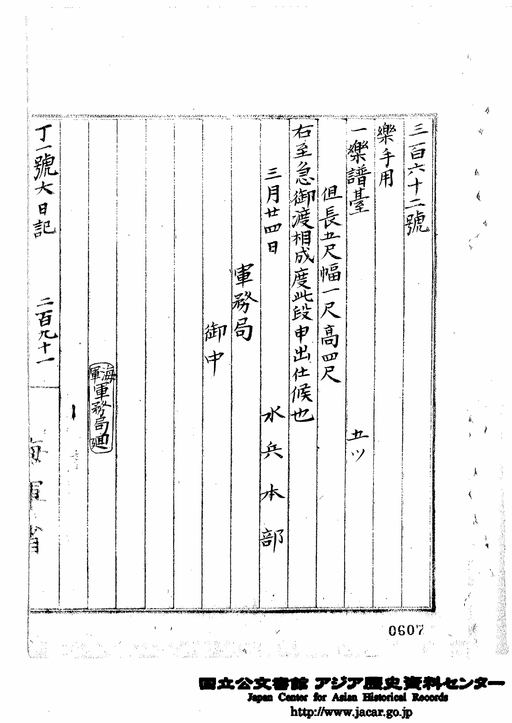 三百六十二號
樂手用
一樂譜臺 五ツ
但長五尺幅一尺高四尺
右至急御渡相成度此段申出仕候也
三月廿四日 水兵本部
軍務局
御中
海軍軍務局廻
丁一號大日記 二百九十一
海軍省
0607
国立公文書館 アジア歴史資料センター
Japan Center for Asian Historical Records
http://www.jacar.go.jp